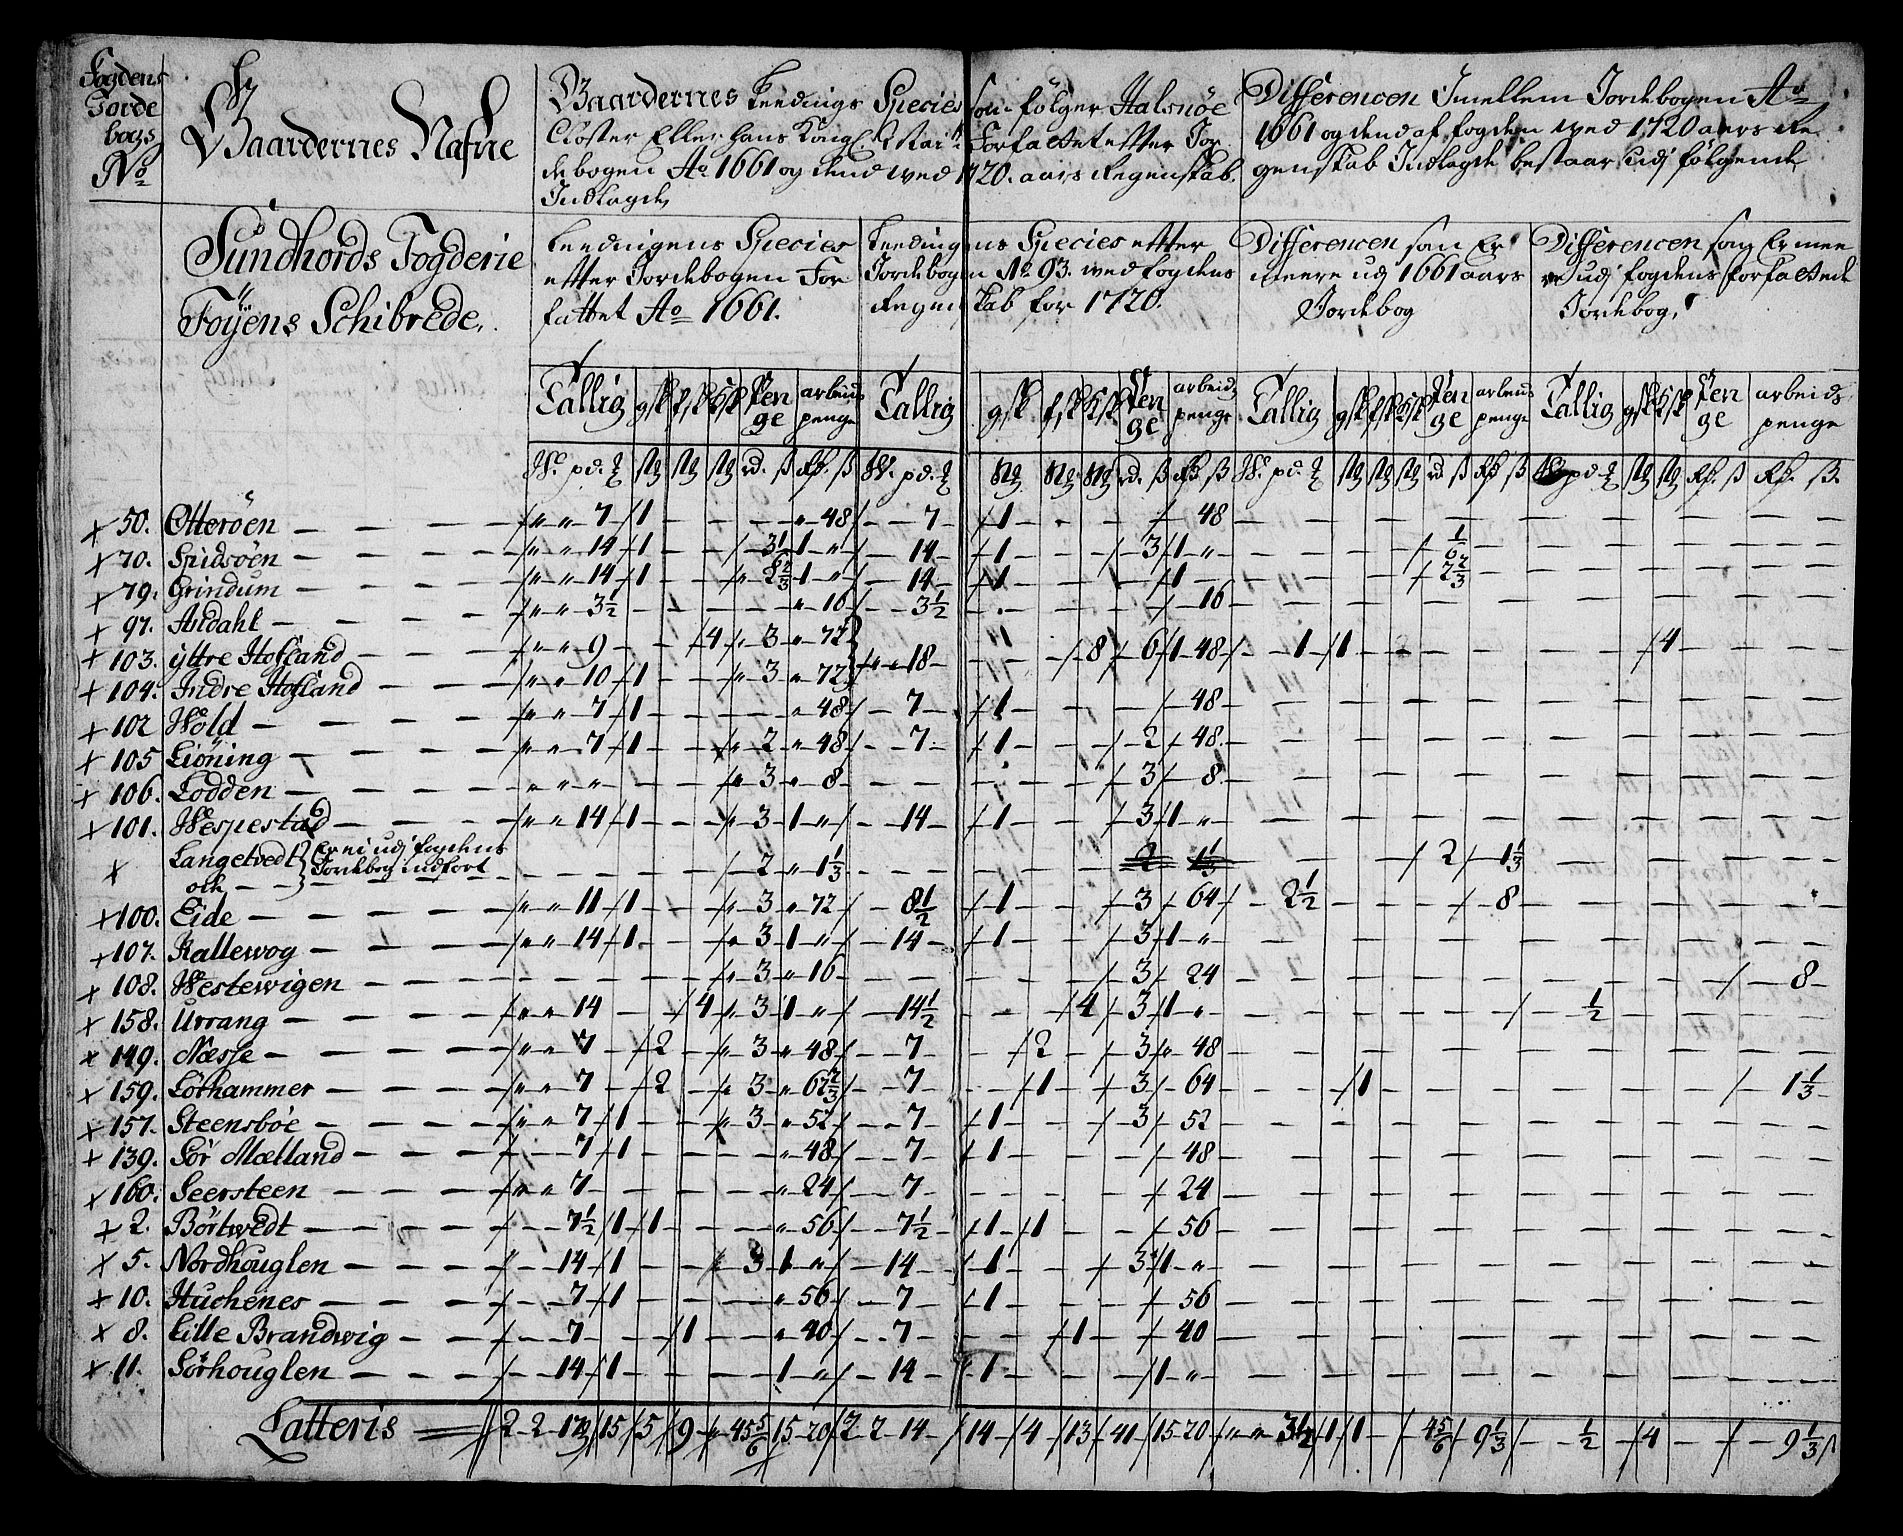 Fogdens
Jorde
bogs
No
Gaardernes Nafne
Gaardernes Leednings Species som følger Halsnöe
Closter Eller hans Kongl. May:ts Forfattet efter Jor-
debogen Ao 1661 og dend wed 1720. aars Regenskab.
Indlagde,
Differencen Imellem Jordebogen Ao
1661 og dend af fogden wed 1720 aars Re-
genskab Indlagde bestaar udj følgende,
Sundhords Fogderie
Föÿens Schibrede.
Leedningens Species
efter Jordebogen For
fattet Ao 1661.
Leedningens Species efter
Jordebogen No. 93. wed fogdens
Regenskab for 1720.
Differencen som Er
meere udj 1661 aars
Jordebog
Differencen som Er mee
re udj fogdens forfattede
Jordebog,
Tallig g:sk f:sk h:sk Pen ge arbeids penge Tallig g:sk f:sk h:sk Pen ge arbeids penge Tallig g:sk f:sk h:sk Pen ge arbeids penge Tallig g:sk h:sk Pen ge arbeids penge
+ 50. Otteröen 7 1 48 7 1 48
+ 70. Spidsöen 14 1 3 1/6 1 14 1 3 1 1/6
+ 79. Grindum 14 1 2 2/3 1 14 1 1 2 2/3
+ 97. Andahl 3 1/2 16 3 1/2 16
+ 103. yttre Hofland 9 4 3 72 18 8 6 1 48 1 1 4
+ 104. Indre Hofland 10 1 3 72
+ 102 Wold 7 1 48 7 1 48
+ 105 Liöning 7 1 2 48 7 1 2 48
+ 106. Lodden 3 8 3 8
+ 101. Wespestad 14 1 3 1 14 1 3 1
+ Langetvedt Er ei udj fogdens
och Jordebog indfört 2 1 1/3 2 1 1/3 2 1 1/3
+ 100. Eide 11 1 3 72 8 1/2 1 3 64 2 1/2 8
+ 107. Kallewog 14 1 3 1 14 1 3 1
+ 108. Westewigen 3 16 3 24 8
+ 158. Urrang 14 4 3 1 14 1/2 4 3 1 1/2
+ 149. Næsse 7 2 3 48 7 2 3 48
+ 159. Lörhammer 7 2 3 62 2/3 7 1 3 64 1 1 1/3
+ 157. Steensböe 7 1 3 52 7 1 3 52
+ 139. Sör Mælland 7 1 48 7 1 48
+ 160. Seersteen 7 24 7 24
+ 2. Börtwedt 7 1/2 1 1 56 7 1/2 1 1 56
+ 5. Nordhouglen 14 1 3 1 14 1 3 1
+ 10. Huchenes 7 1 56 7 1 56
+ 8. Lille Brandwig 7 1 40 7 1 40
+ 11. Sörhouglen 14 1 1 14 1 1
Latteris 2 2 17 1/2 15 5 9 45 5/6 15 20 2 2 14 14 4 13 41 15 20 3 1/2 1 1 4 5/6 9 1/3 1/2 4 9 1/3